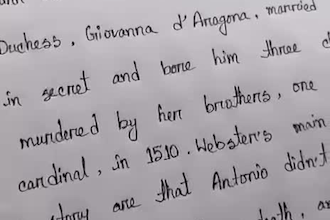 Duchess, Giovanna d'Aragona, married
in secret and bore him three
murdered by her brothers, one
cardinal, in 1510. Webster's main
are that Antonio didn't